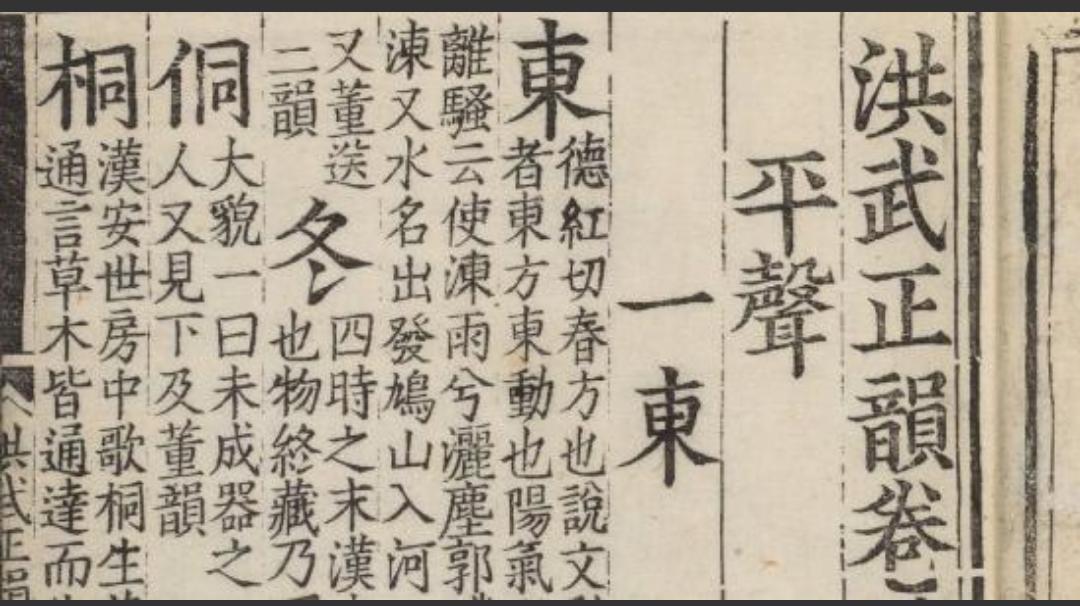 洪武正韻卷
平聲
一東
東 德紅切春方也說文
者東方東動也陽氣
離騷云使涷雨兮灑塵郭
涷又水名出發鳩山入河
又董送
二韻
冬 四時之末漢
也物終藏乃
侗 大貌一曰未成器之
人又見下及董韻
桐 漢安世房中歌桐生
通言草木皆通達而
洪武正韻